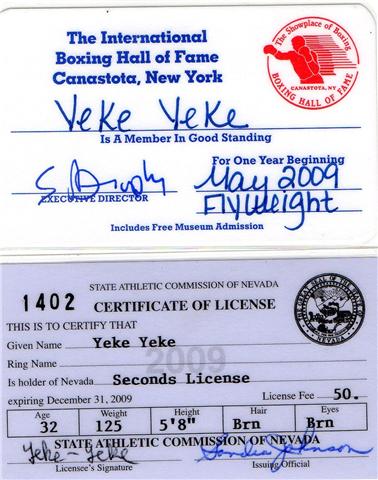 The International
Boxing Hall of Fame
Canastota, New York
The Showplace of Boxing
CANASTOTA, NY
BOXING HALL OF FAME
Yeke Yeke
Is A Member In Good Standing
For One Year Beginning
May 2009
EXECUTIVE DIRECTOR
Flyweight
Includes Free Museum Admission
STATE ATHLETIC COMMISSION OF NEVADA
1402 CERTIFICATE OF LICENSE
THIS IS TO CERTIFY THAT
Given Name Yeke Yeke
2009
Ring Name
Is holder of Nevada Seconds License
expiring December 31, 2009 License Fee 50.
Age Weight Height Hair Eyes
32 125 5'8" Brn Brn
STATE ATHLETIC COMMISSION OF NEVADA
Yeke-Yeke Sandra Johnson
Licensee's Signature Issuing Official